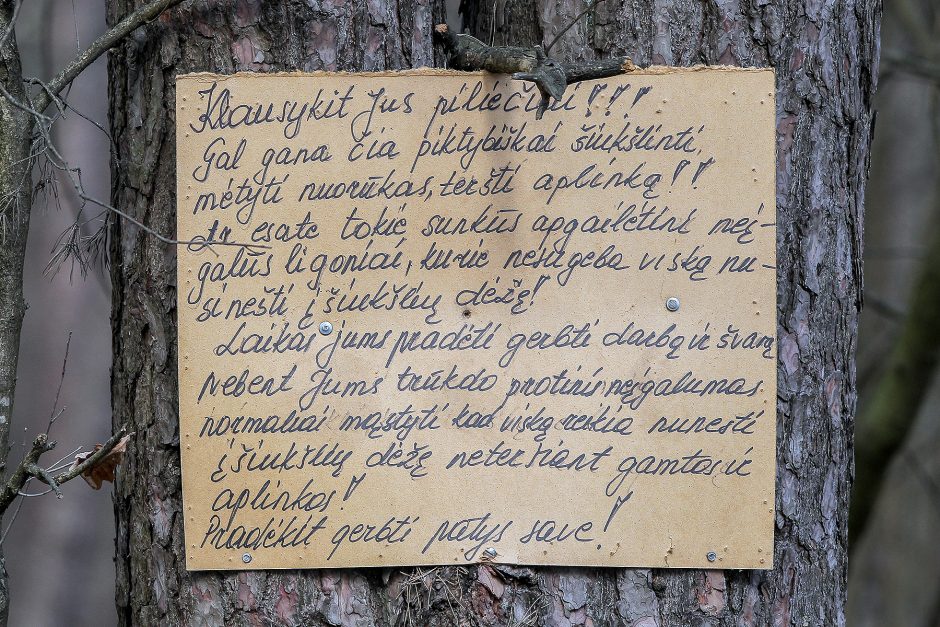 Klausykit Jus piliečiai!!!
Gal gana čia piktybiškai šiukšlinti,
mėtyti nuorūkas, teršti aplinką!!
Ar esate tokie sunkūs apgailėtini neį-
galūs ligoniai, kurie nesugeba viską nu-
sinešti į šiukšlių dėžę!
Laikas jums pradėti gerbti darbą ir švarą
Nebent Jums trūkdo protinis neįgalumas
normaliai mąstyti kad viską reikia nunešti
į šiukšlių dėžę neteršiant gamtos ir
aplinkos!
Pradėkit gerbti patys save!